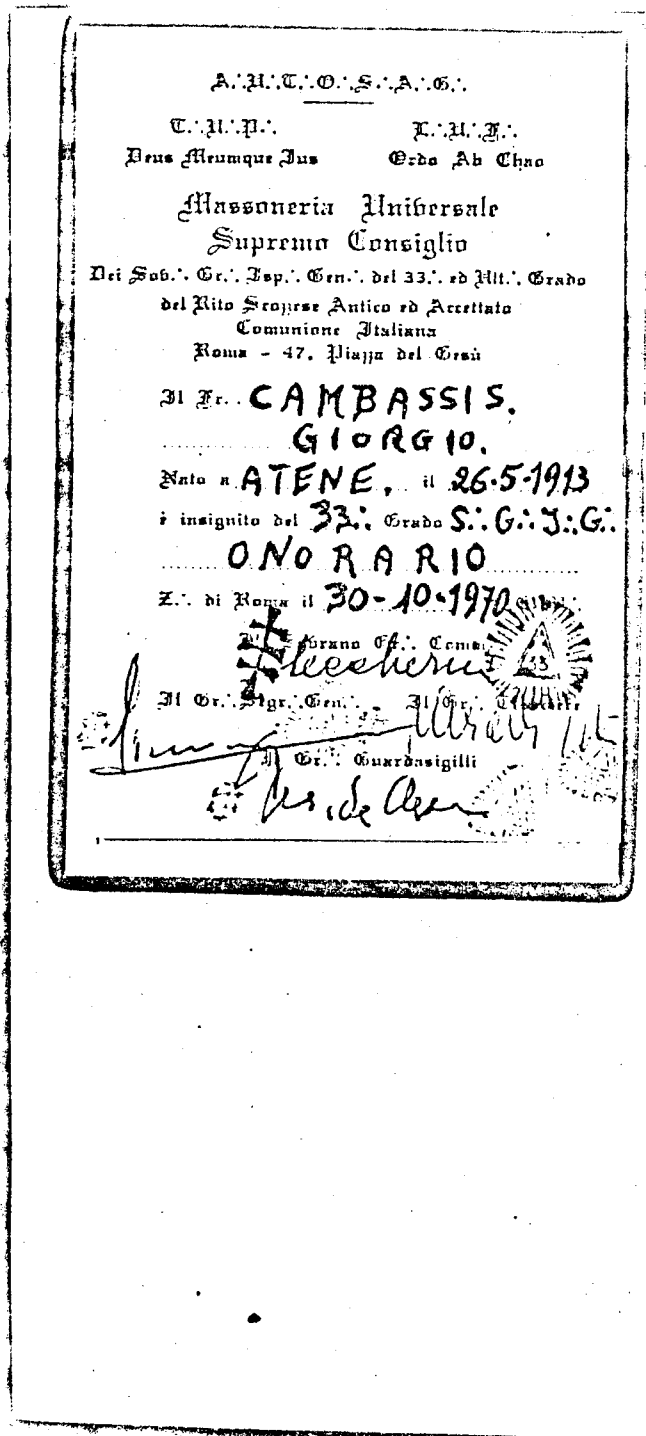 A∴U∴T∴O∴S∴A∴G∴
T∴U∴P∴ L∴U∴F∴
Deus Meumque Jus Ordo Ab Chao
Massoneria Universale
Supremo Consiglio
Dei Sob∴ Gr∴ Isp∴ Gen∴ del 33∴ ed Ult∴ Grado
del Rito Scozzese Antico ed Accettato
Comunione Italiana
Roma - 47, Piazza del Gesù
Il Fr.. CAMBASSIS.
GIORGIO.
Nato a ATENE. il 26-5-1913
è insignito del 33∴ Grado S∴G∴I∴G∴
ONORARIO
Z∴ di Roma il 30-10-1970
Gr∴
33
Il Gr∴ Segr∴ Gen∴ Il Gr∴
Il Gr∴ Guardasigilli